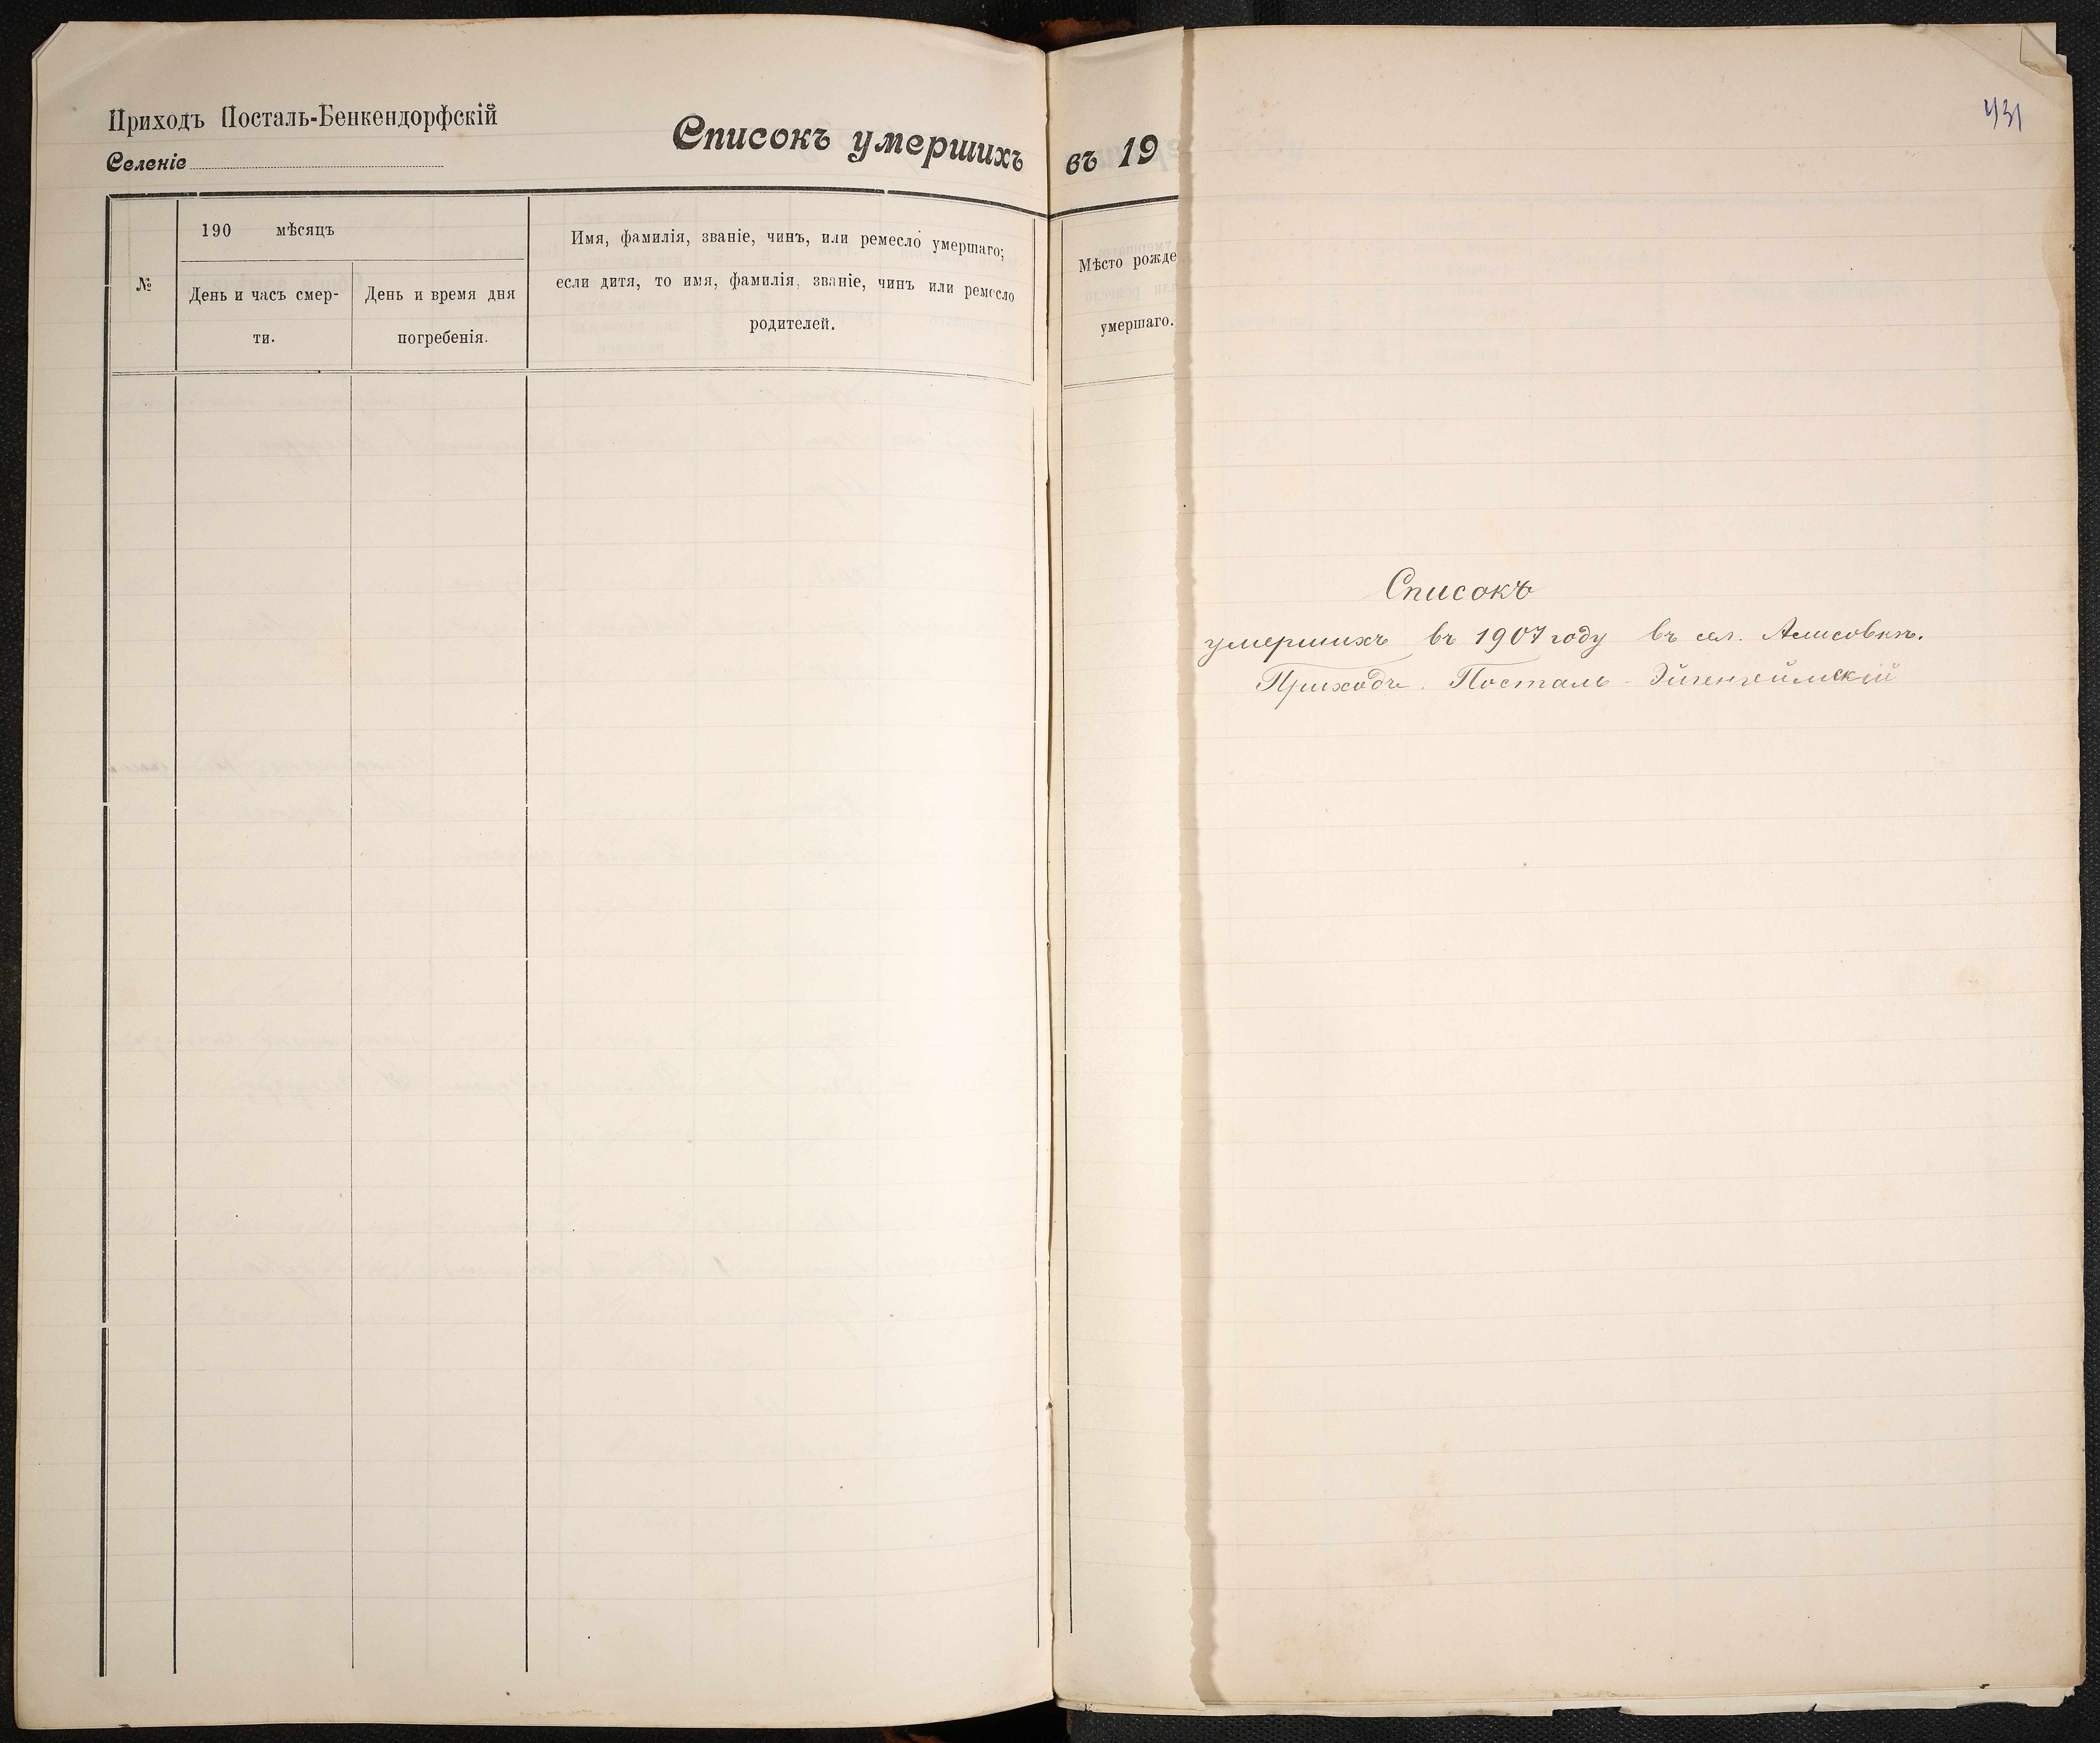 Приходъ Посталь-Бенкендорфскій
Селеніе
Списокъ умершихъ въ 19
№
190 мѣсяцъ
День и часъ смер-
ти.
День и время дня
погребенія.
Имя, фамилія, званіе, чинъ, или ремесло умершаго;
если дитя, то имя, фамилія, званіе, чинъ или ремесло
родителей.
Мѣсто рожде
умершаго.
431
Списокъ
умершихъ въ 1907 году въ сел. Алисовкѣ.
Приходъ. Посталь-Эйгенгеймскій